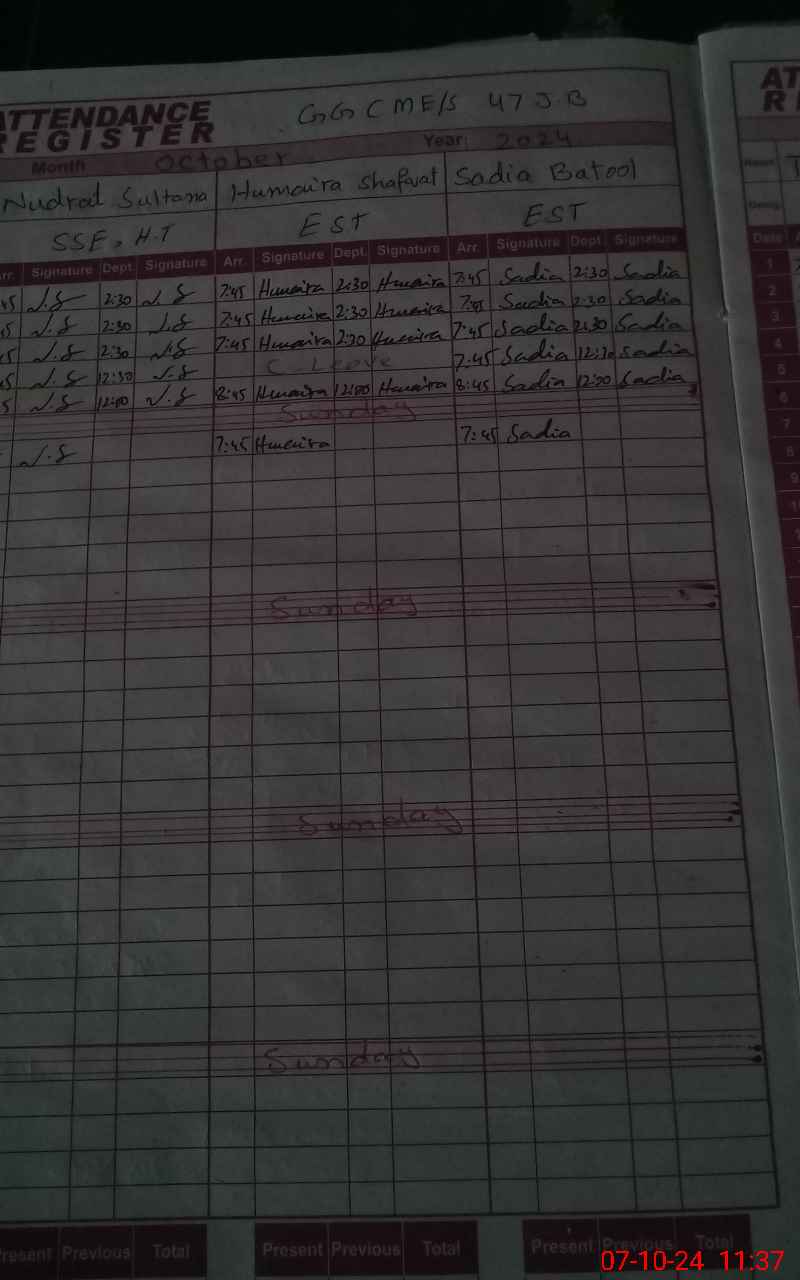 ATTENDANCE
REGISTER
GGCME/S 47 J.B
AT
R
Month October Year: 2024
Nudrat Sultana Humaira Shafqat Sadia Batool
SSE, H.T EST EST
Arr. Signature Dept. Signature Arr. Signature Dept. Signature Arr. Signature Dept. Signature Date
45 N.S 2:30 N.S 7:45 Humaira 2:30 Humaira 7:45 Sadia 2:30 Sadia 1
45 N.S 2:30 N.S 7:45 Humaira 2:30 Humaira 7:45 Sadia 2:30 Sadia 2
45 N.S 2:30 N.S 7:45 Humaira 2:30 Humaira 7:45 Sadia 2:30 Sadia 3
45 N.S 12:30 N.S C. Leave 7:45 Sadia 12:30 Sadia 4
45 N.S 12:00 N.S 8:45 Humaira 12:00 Humaira 8:45 Sadia 12:00 Sadia 5
Sunday 6
N.S 7:45 Humaira 7:45 Sadia 7
8
9
Sunday
Sunday
Sunday
Present Previous Total Present Previous Total Present Previous Total
07-10-24 11:37